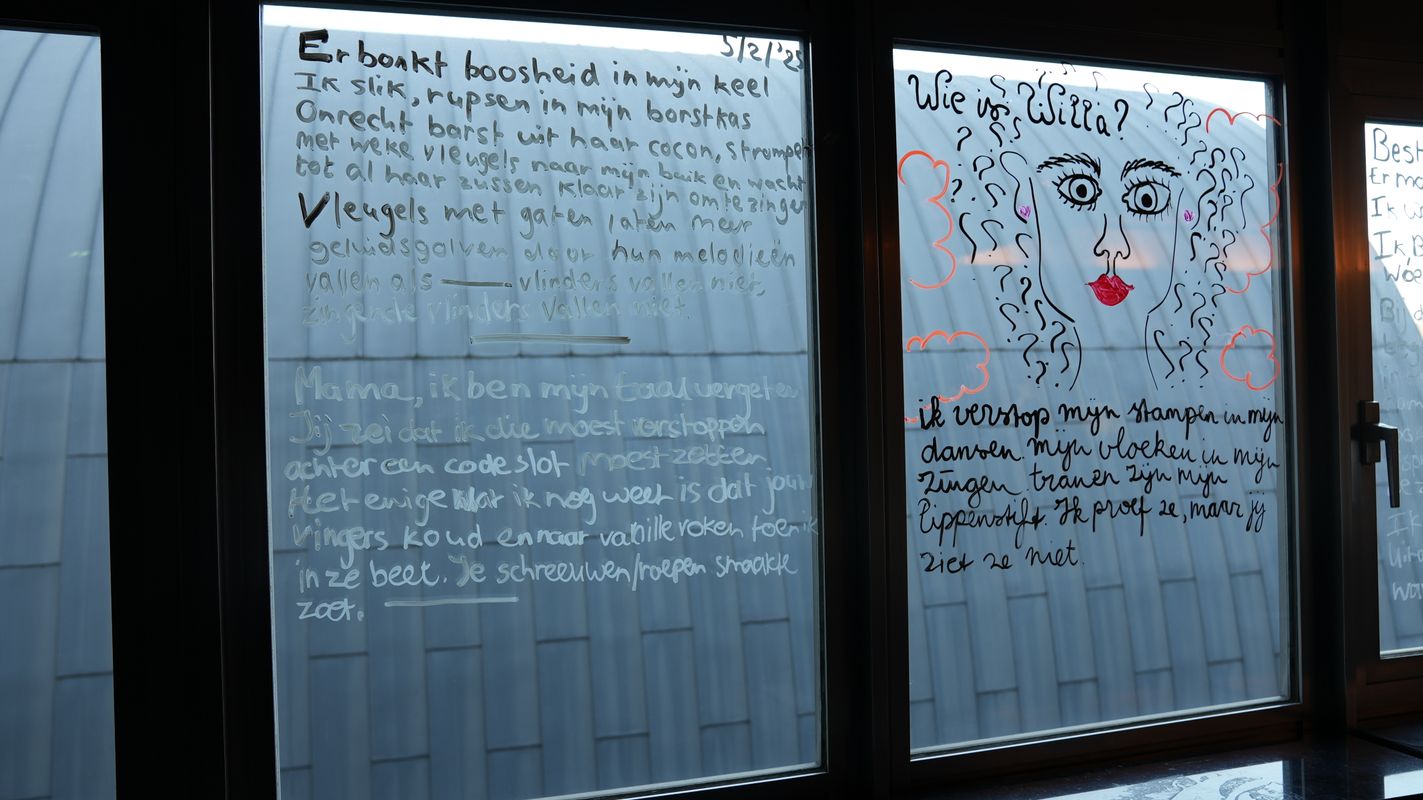 5/2/'25
Er bonkt boosheid in mijn keel
Ik slik, rupsen in mijn borstkas
Onrecht barst uit haar cocon, strompelt
met weke vleugels naar mijn buik en wacht
tot al haar zussen klaar zijn om te zingen
Vleugels met gaten laten meer
geluidsgolven door hun melodieën
vallen als — vlinders vallen niet,
zingende vlinders vallen niet.
Mama, ik ben mijn taal vergeten
Jij zei dat ik die moest verstoppen
achter een codeslot moest zetten
Het enige wat ik nog weet is dat jouw
vingers koud en naar vanille roken toen ik
in ze beet. Je schreeuwen/roepen smaakte
zoet.
Wie is Willa?
ik verstop mijn stampen in mijn
dansen. Mijn vloeken in mijn
zingen tranen zijn mijn
lippenstift. Ik proef ze, maar jij
ziet ze niet.
Best
Er mo
Ik
Ik